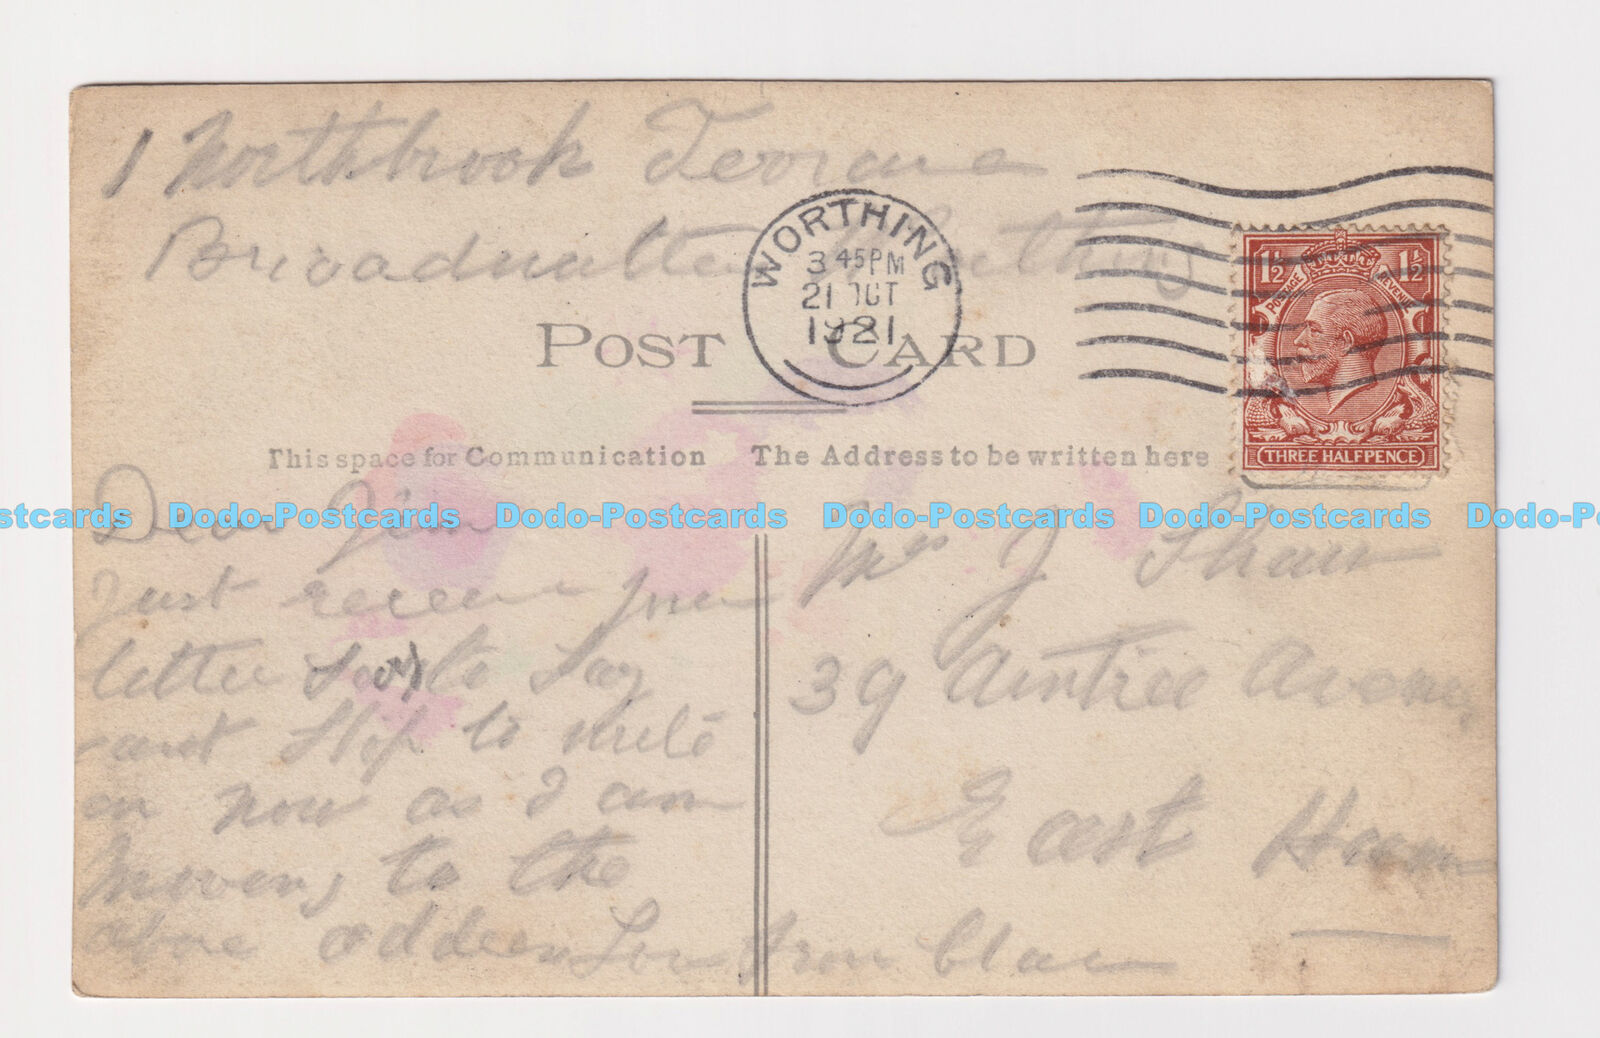 1 Northbrook Terrace
Broadwater Worthing
WORTHING
3 45PM
21 OCT
1921
POST CARD
1½ 1½
POSTAGE REVENUE
THREE HALFPENCE
This space for Communication
The Address to be written here
Dear Jim
just receive your
letter to say
cant stop to write
on now as I am
moving to the
above address Love from
Mrs J Shaw
39 Aintree Avenue
East Ham
Dodo-Postcards Dodo-Postcards Dodo-Postcards Dodo-Postcards